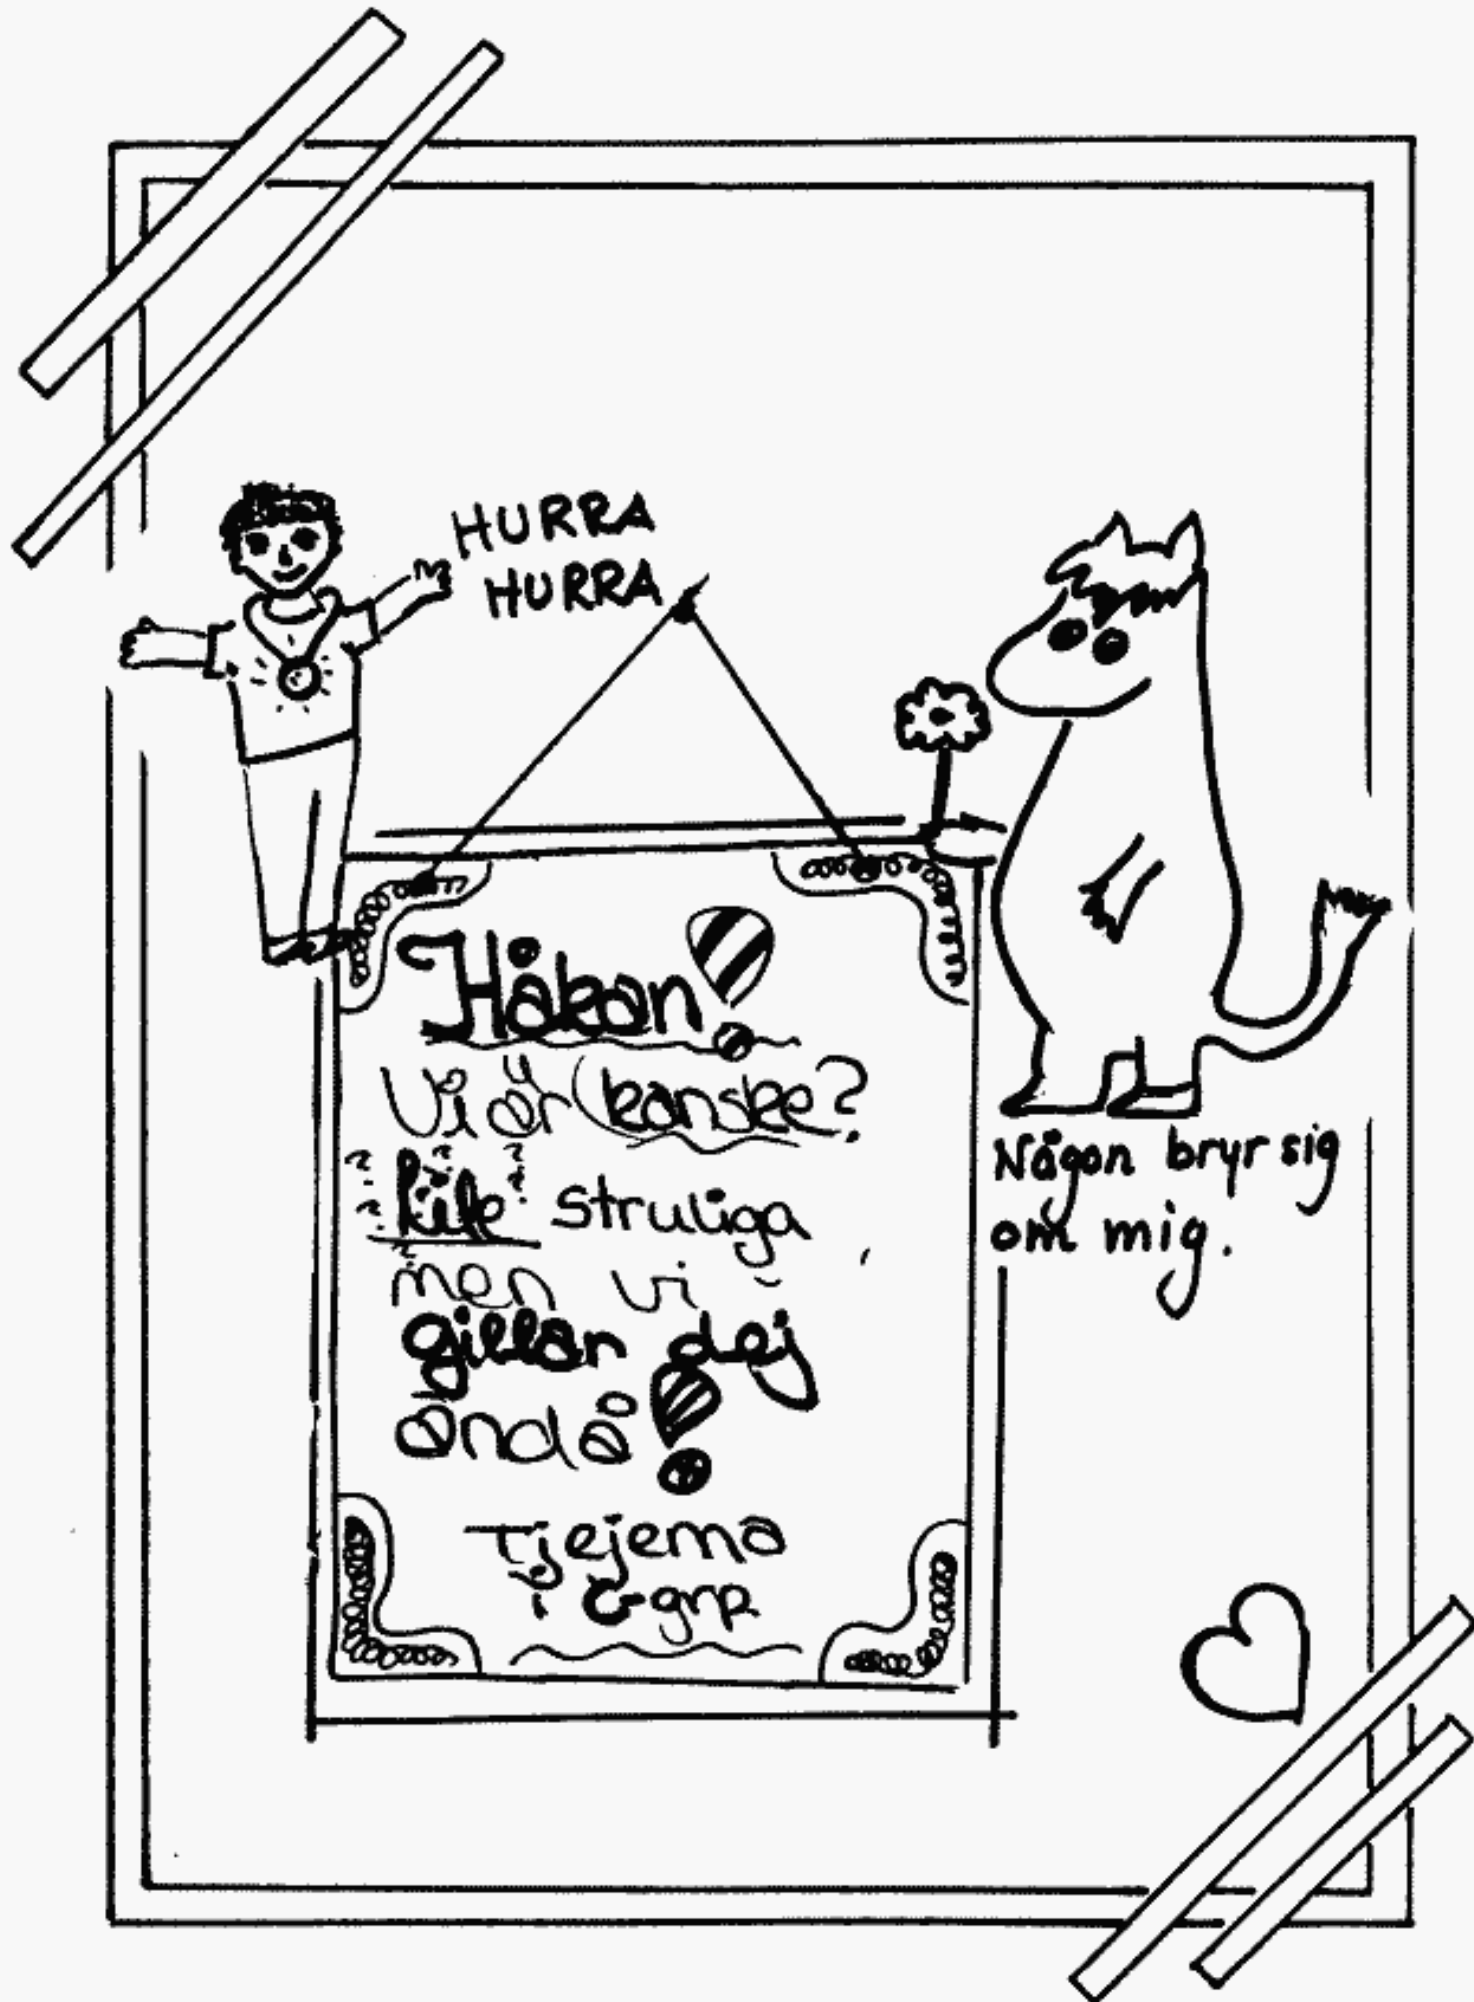 HURRA
HURRA
Håkan!
Vi är kanske?
lite struliga
men vi
gillar dej
ändå!
Tjejerna
i G-grp
Någon bryr sig
om mig.